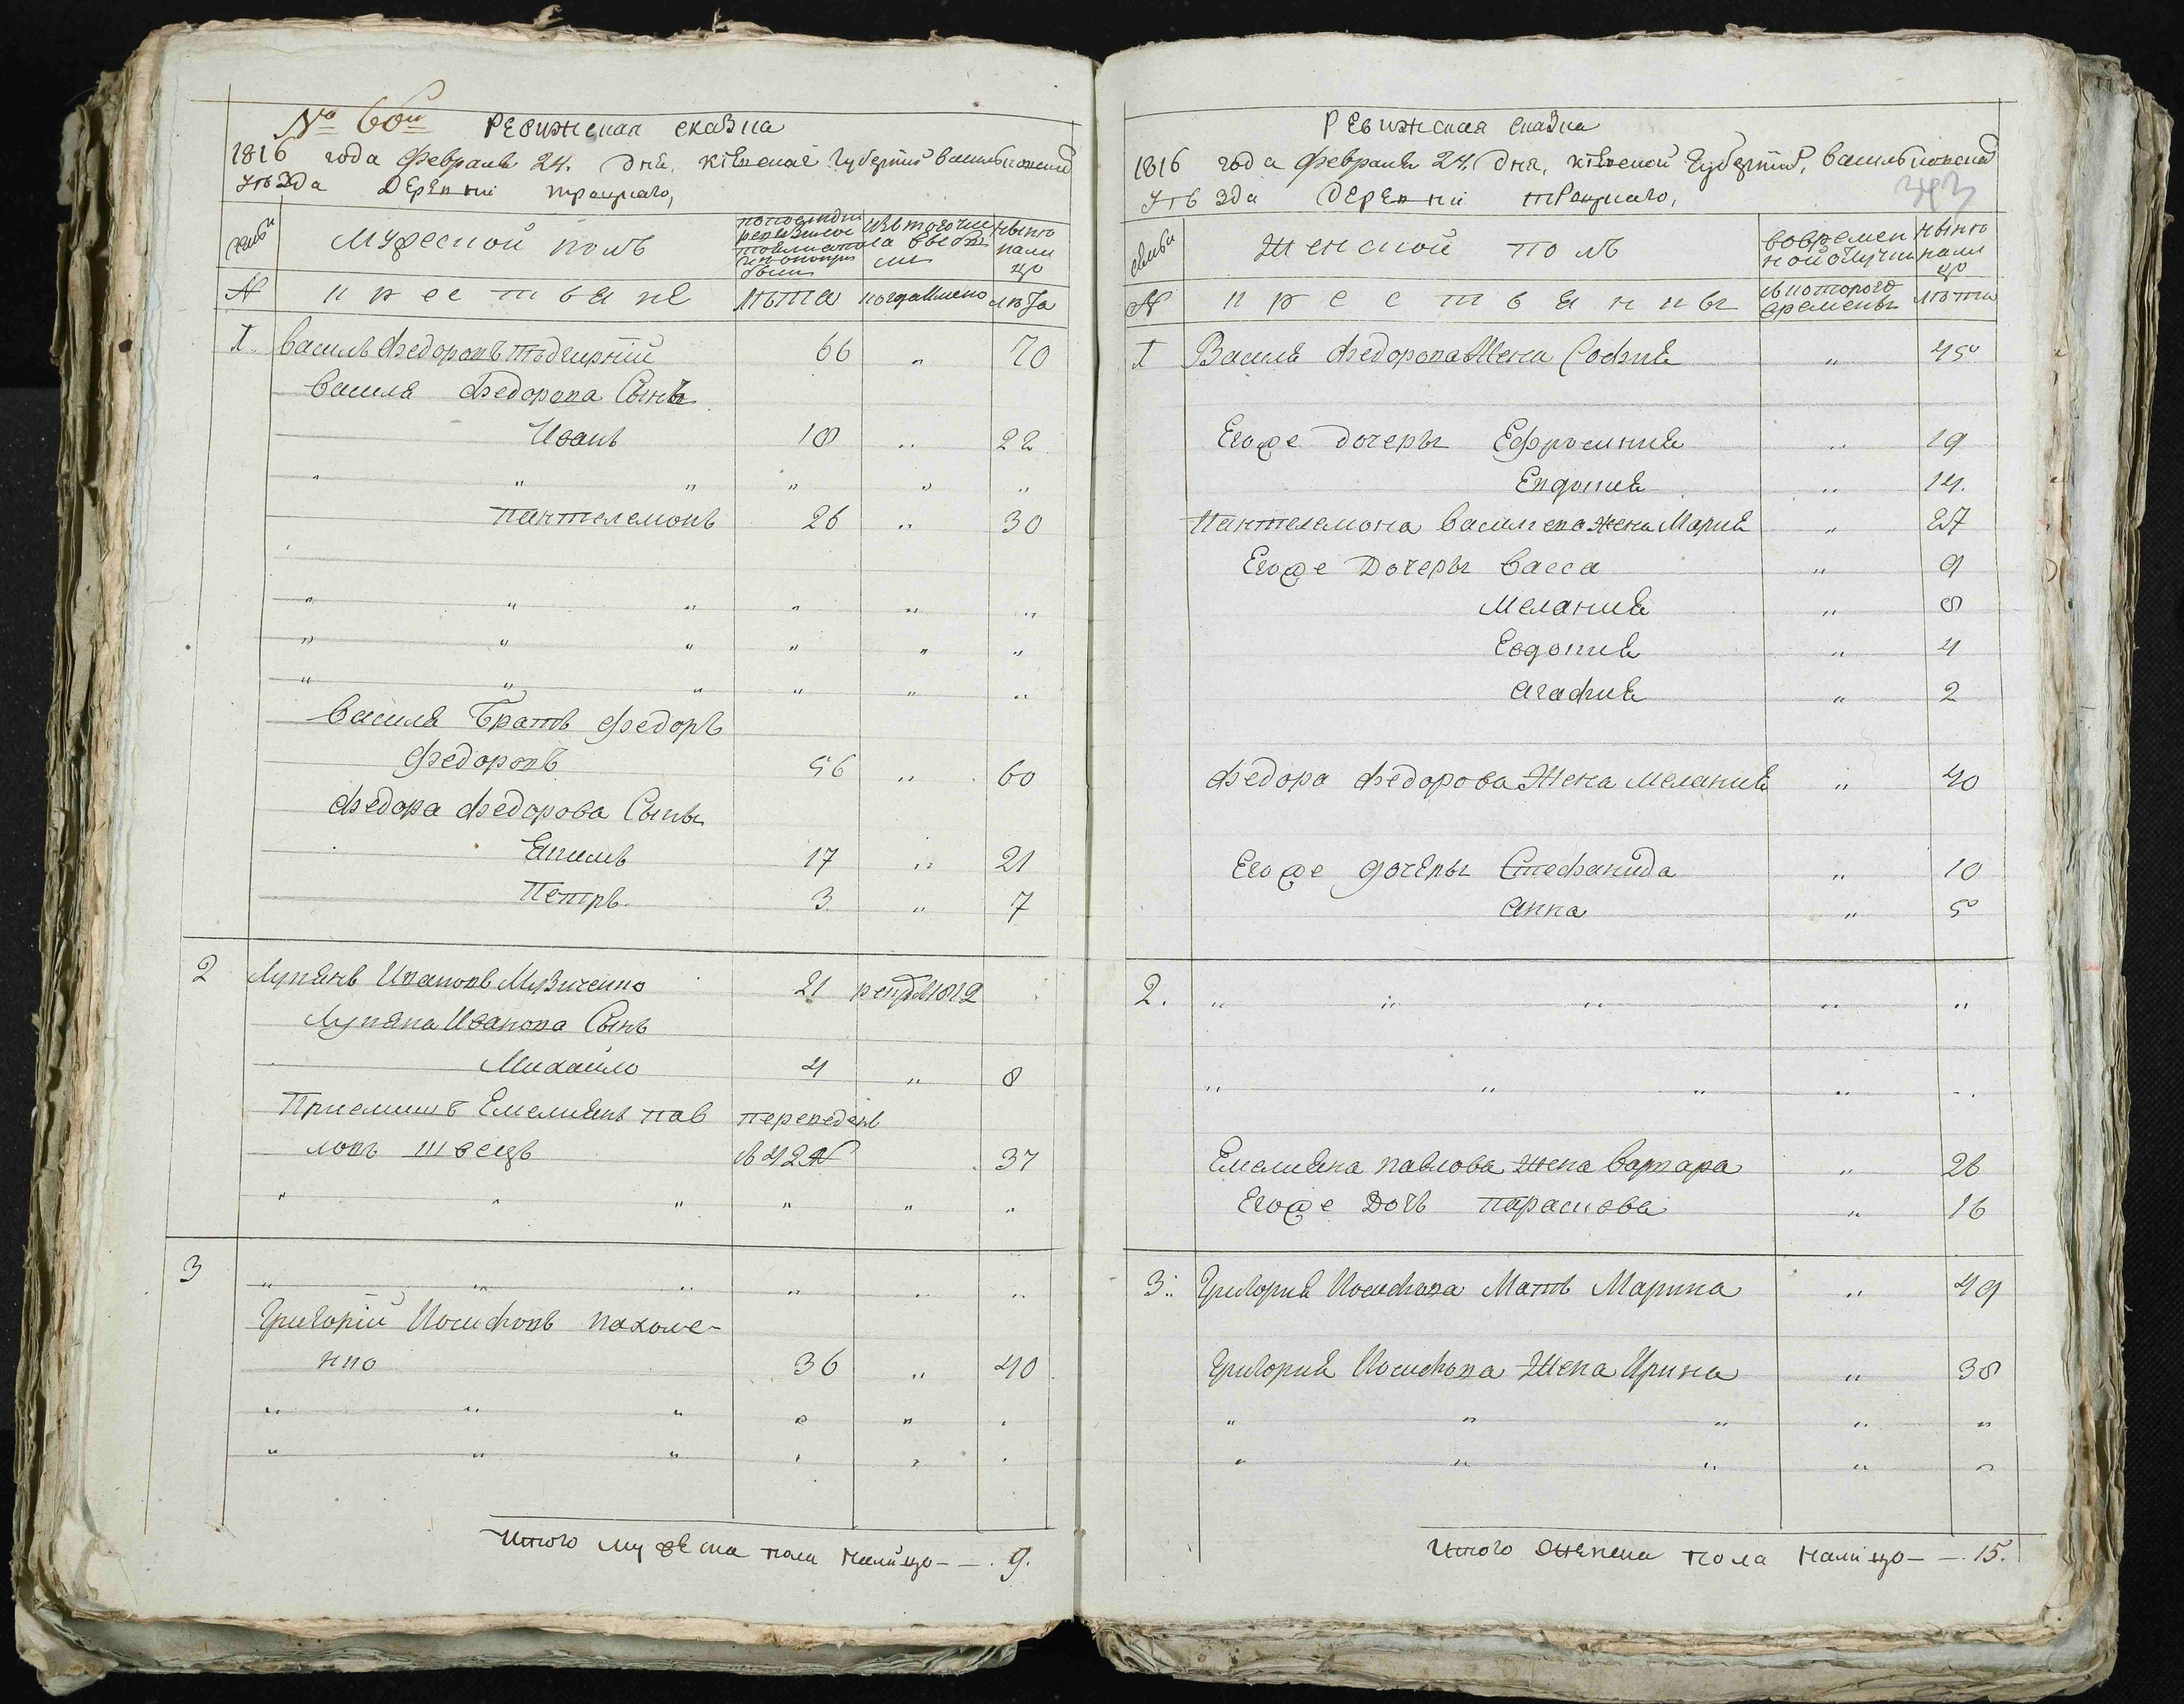 № 60й Ревижская сказка
1816 года Февраля 24. дня, кіевской губерніи васильковской
уѣзда деревни троцкаго,
семьи
Мужеской полъ
По последней ревизіи состояло и послѣ оной прибыло
Изъ того числа выбыло
Нынѣ на лицо
№ крестьяне лѣта когда именно лѣта
1. Василь Федоровъ Подчирній 66 „ 70
Василя Федорова Сынъ
Иванъ 18 „ 22
„ „ „ „ „ „
Пантелемонъ 26 „ 30
„ „ „ „ „ „
„ „ „ „ „ „
„ „ „ „ „ „
Василя Братъ Федоръ
Федоровъ 56 „ 60
Федора Федорова Сыны
Якимъ 17 „ 21
Петръ 3 „ 7
2 Лукянъ Ивановъ Музиченко 21 рекрут 1812
Лукяна Иванова Сынъ
Михайло 4 „ 8
Приемышъ Емелиянъ пав переведенъ
ловъ швецъ с 42 № 37
„ „ „ „ „ „
3 „ „ „ „ „ „
Григорій Иосифовъ пахоле-
нко 36 „ 40
„ „ „ „ „ „
„ „ „ „ „ „
Итого мужеска пола налицо — — 9.
Ревижская сказка
1816 года Февраля 24. дня, кіевской Губерніи, васильковской
уѣзда деревни троцкаго,
343
семьи
Женской полъ
Во временной отлучкѣ
Нынѣ на лицо
№ крестьянкы съ котораго времены лѣта
1 Василя Федорова Жена София „ 45
Егоже дочеры Ефросиния „ 19
Евдокия „ 14.
Пантелемона Василева жена Мария „ 27
Егоже Дочеры Васса „ 9
Мелания „ 8
Евдокия „ 4
Агафия „ 2
Федора Федорова Жена Мелания „ 40
Егоже дочеры Стефанида „ 10
Анна „ 5
2. „ „ „ „ „
„ „ „ „ „
Емелияна павлова жена Варвара „ 26
Егоже Дочъ параскова „ 16
3. Григория Иосифова Мать Марина „ 49
Григория Иосифова Жена Ирина „ 38
„ „ „ „ „
„ „ „ „ „
Итого Женска пола налицо — — 15.